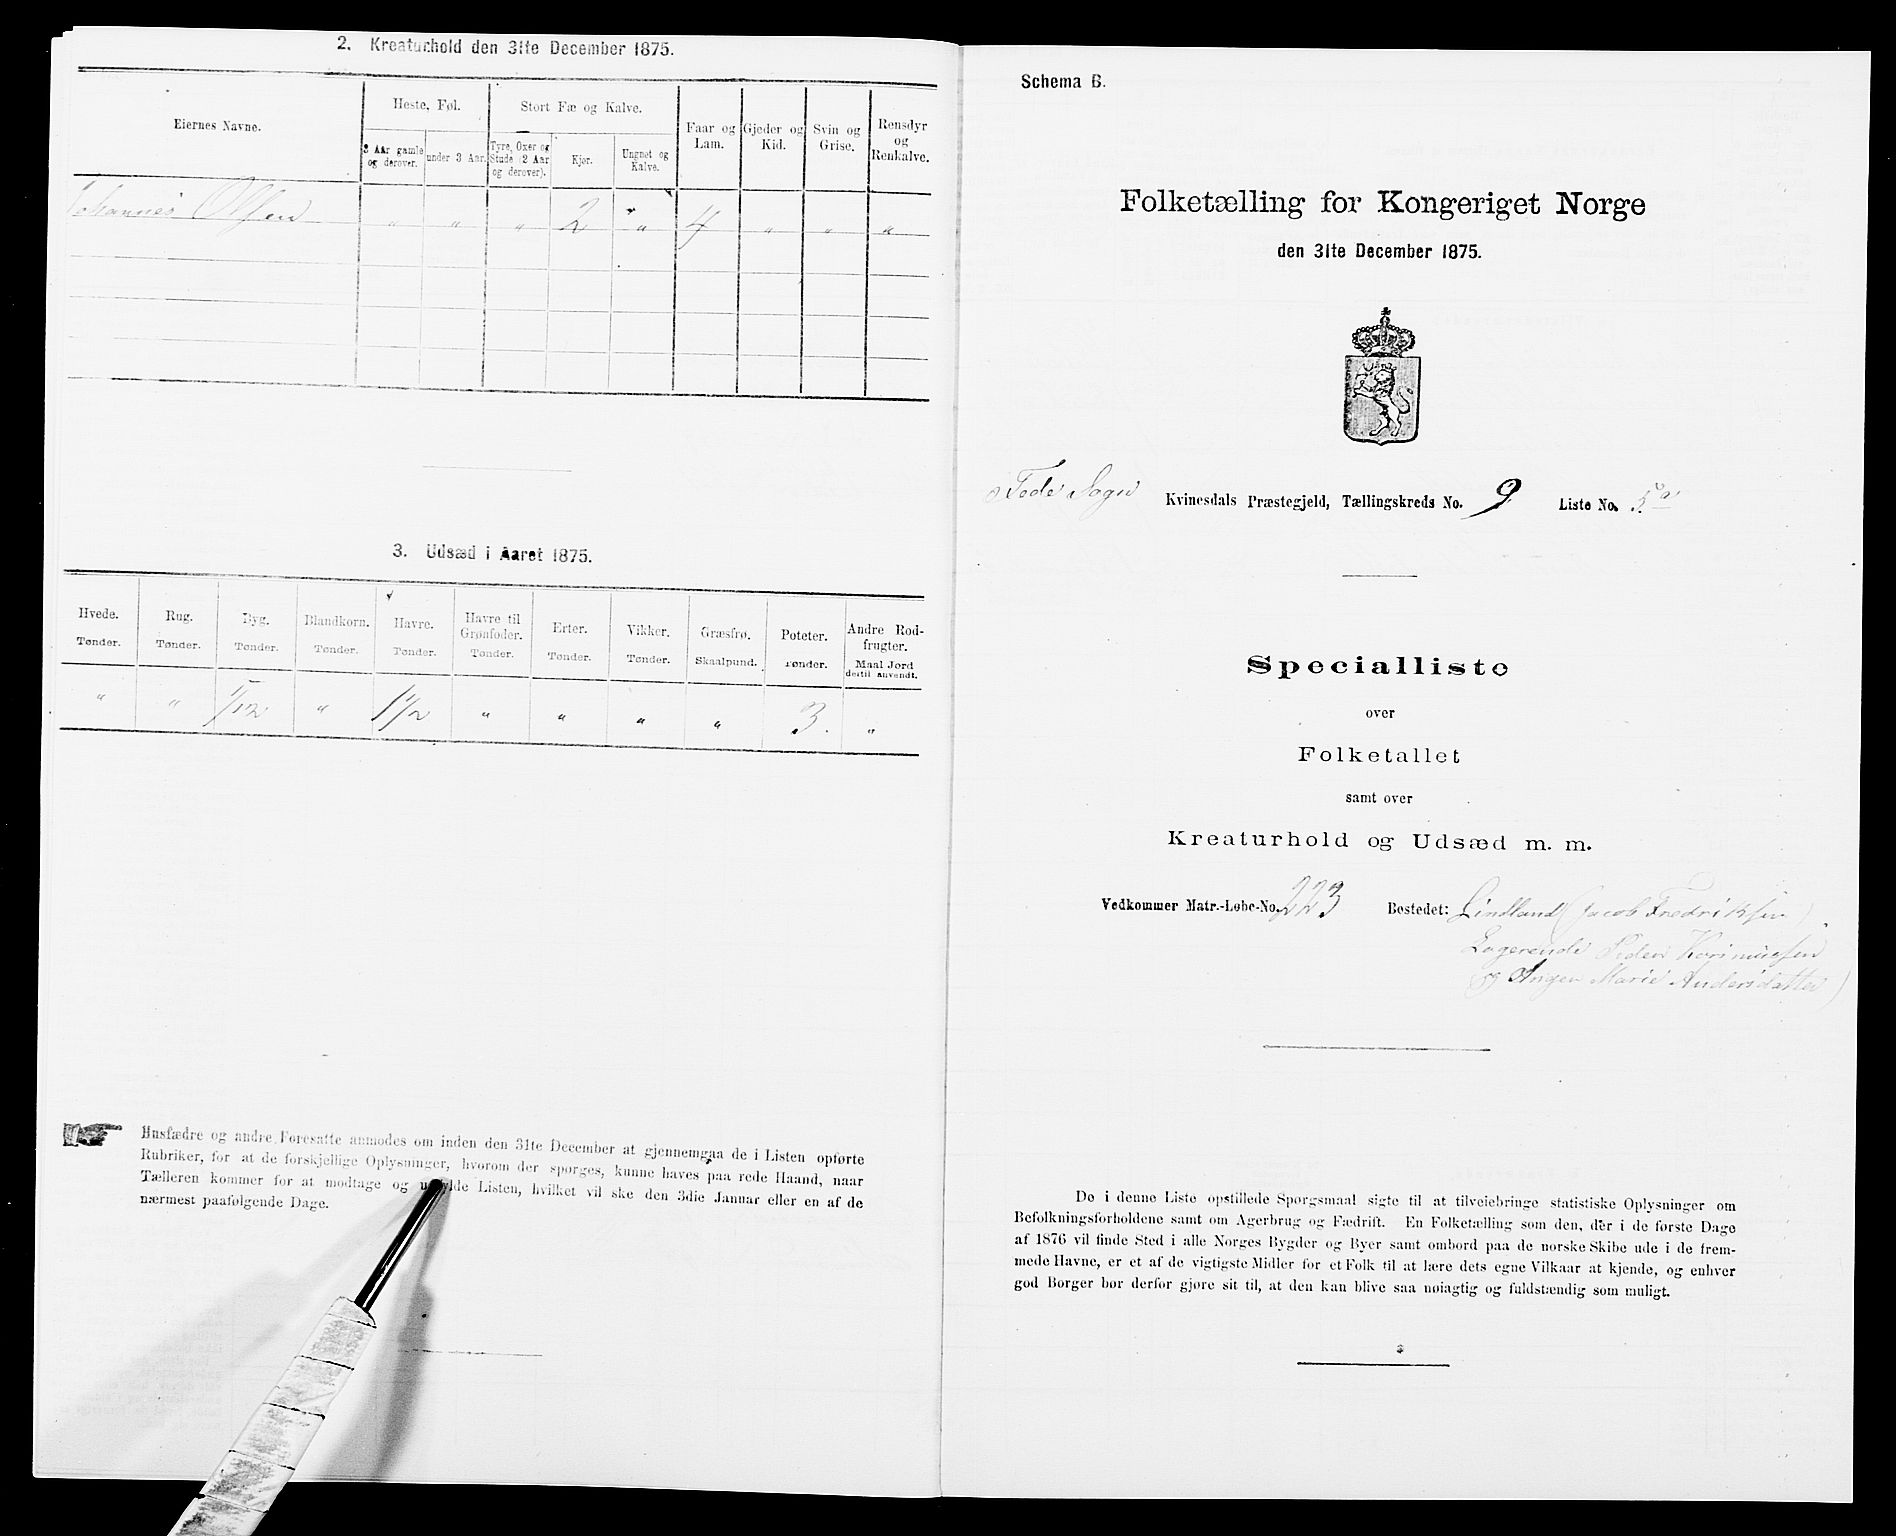 2. Kreaturhold den 31te December 1875.
Eiernes Navne.
Heste, Føl.
Stort Fæ og Kalve.
Faar og Lam.
Gjeder og Kid.
Svin og Grise.
Rensdyr og Renkalve.
3 Aar gamle og derover.
under 3 Aar.
Tyre, Oxer og Stude (2 Aar og derover).
Kjør.
Ungnet og Kalve.
Johannes Olsen " " " 2 " 4 " " "
3. Udsæd i Aaret 1875.
Hvede. Rug. Byg. Blandkorn. Havre. Havre til Grønfoder. Erter. Vikker. Græsfrø. Poteter. Andre Rodfrugter.
Tønder. Tønder. Tønder. Tønder. Tønder. Tønder. Tønder. Tønder. Skaalpund. Tønder. Maal Jord dertil anvendt.
" " 1/12 " 1 1/2 " " " " 3. "
Husfædre og andre Foresatte anmodes om inden den 31te December at gjennemgaa de i Listen opførte
Rubriker, for at de forskjellige Oplysninger, hvorom der spørges, kunne haves paa rede Haand, naar
Tælleren kommer for at modtage og udfylde Listen, hvilket vil ske den 3die Januar eller en af de
nærmest paafølgende Dage.
Schema B.
Folketælling for Kongeriget Norge
den 31te December 1875.
Fede Sogn Kvinesdals Præstegjeld, Tællingskreds No. 9 Liste No. 5a
Specialliste
over
Folketallet
samt over
Kreaturhold og Udsæd m. m.
Vedkommer Matr.-Løbe-No. 223 Bostedet: Lindland (Jacob Fredriksen)
Logerende Peder
og Inger Marie Andersdatter)
De i denne Liste opstillede Spørgsmaal sigte til at tilveiebringe statistiske Oplysninger om
Befolkningsforholdene samt om Agerbrug og Fædrift. En Folketælling som den, der i de første Dage
af 1876 vil finde Sted i alle Norges Bygder og Byer samt ombord paa de norske Skibe ude i de frem-
mede Havne, er et af de vigtigste Midler for et Folk til at lære dets egne Vilkaar at kjende, og enhver
god Borger bør derfor gjøre sit til, at den kan blive saa nøiagtig og fuldstændig som muligt.